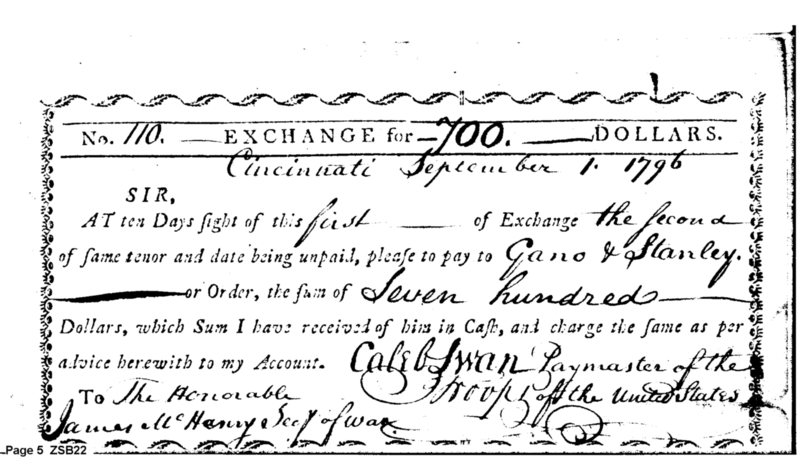 No. 110. EXCHANGE for 700. DOLLARS.
Cincinnati September 1. 1796
SIR,
AT ten Days ſight of this first of Exchange the second
of ſame tenor and date being unpaid, pleaſe to pay to Gano & Stanley.
or Order, the ſum of Seven hundred
Dollars, which Sum I have received of him in Caſh, and charge the ſame as per
advice herewith to my Account. Caleb Swan Paymaster of the
To The Honorable Troops of the United States
James McHenry Secy of war.
Page 5 ZSB22